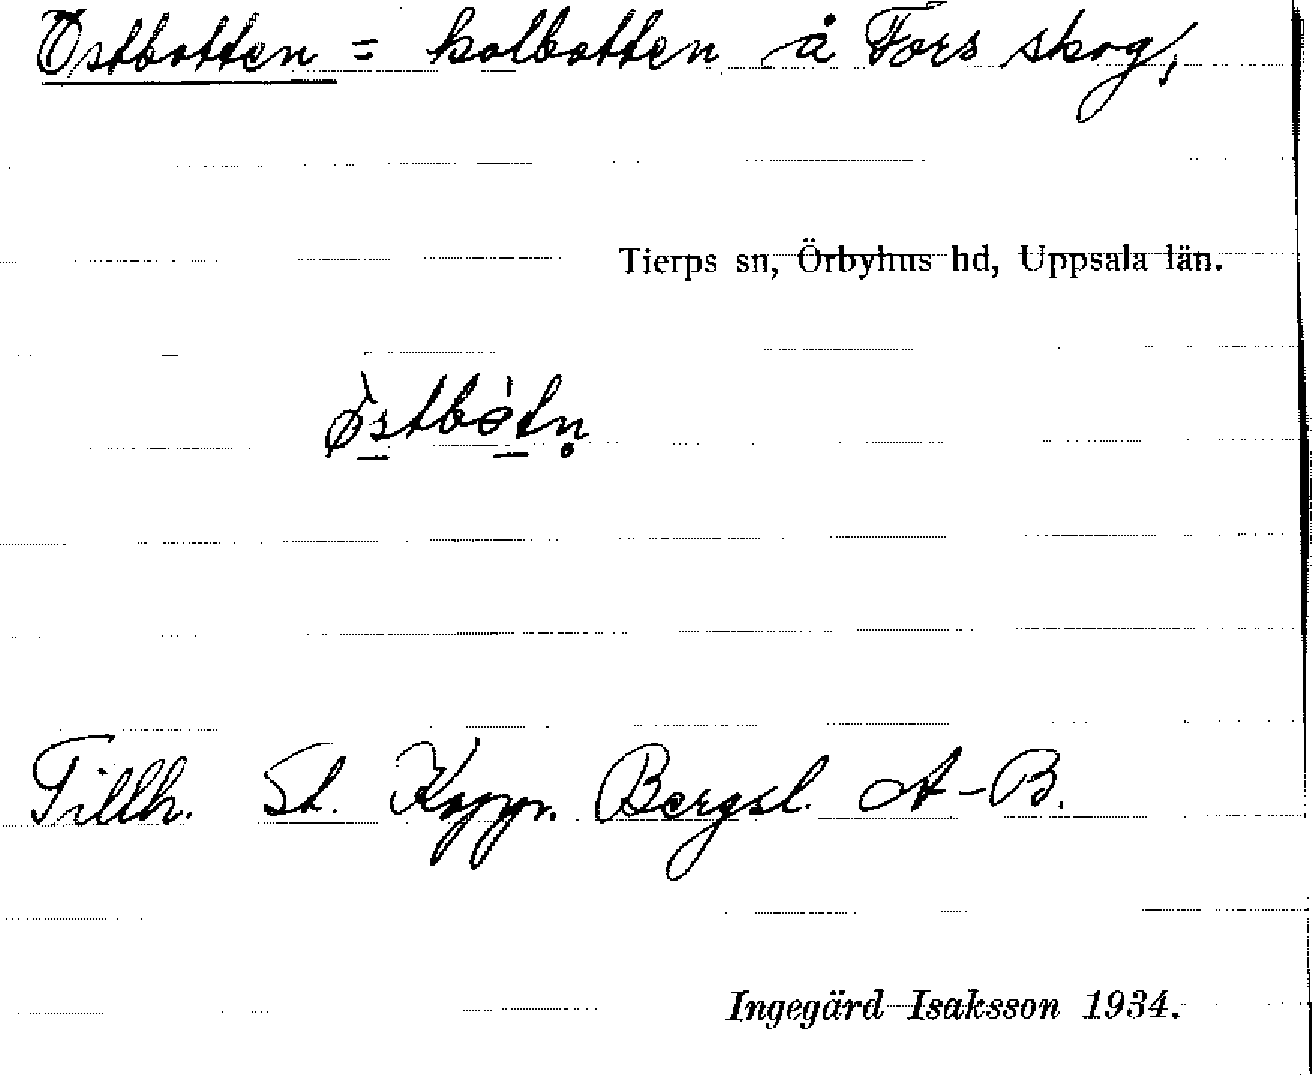 Östbotten = kolbotten å Fors skog,
Tierps sn, Örbyhus hd, Uppsala län.
Tillh. St. Koppr. Bergsl. A-B.
Ingegärd Isaksson 1934.